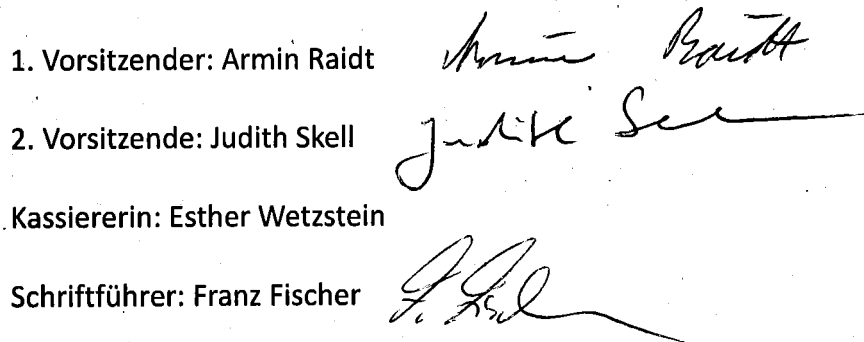 1. Vorsitzender: Armin Raidt Armin Raidt
2. Vorsitzende: Judith Skell Judith
Kassiererin: Esther Wetzstein
Schriftführer: Franz Fischer F.